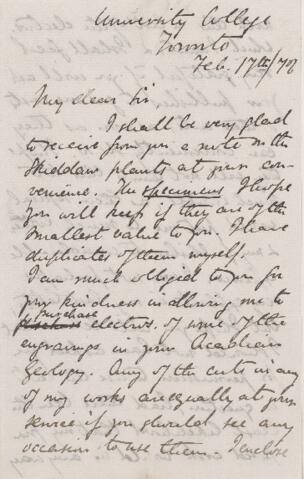 University College
Toronto
Feb. 17th/78
My dear Sir
I shall be very glad
to receive from you a note on the
Skiddaw plants at your con-
venience. The specimens I hope
you will keep if they are of the
smallest value to you. I have
duplicates of them myself.
I am much obliged to you for
your kindness in allowing me to
purchase
electros. of some of the
engravings in your Acadian
Geology. Any of the cuts in any
of my works are equally at your
service if you should see any
occasion to use them. I enclose